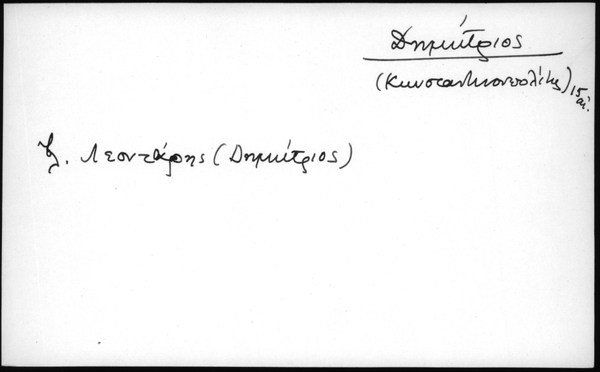 Δημήτριος
(Κωνσταντινουπολίτης) 15 αἰ.
Λεοντάρης (Δημήτριος)